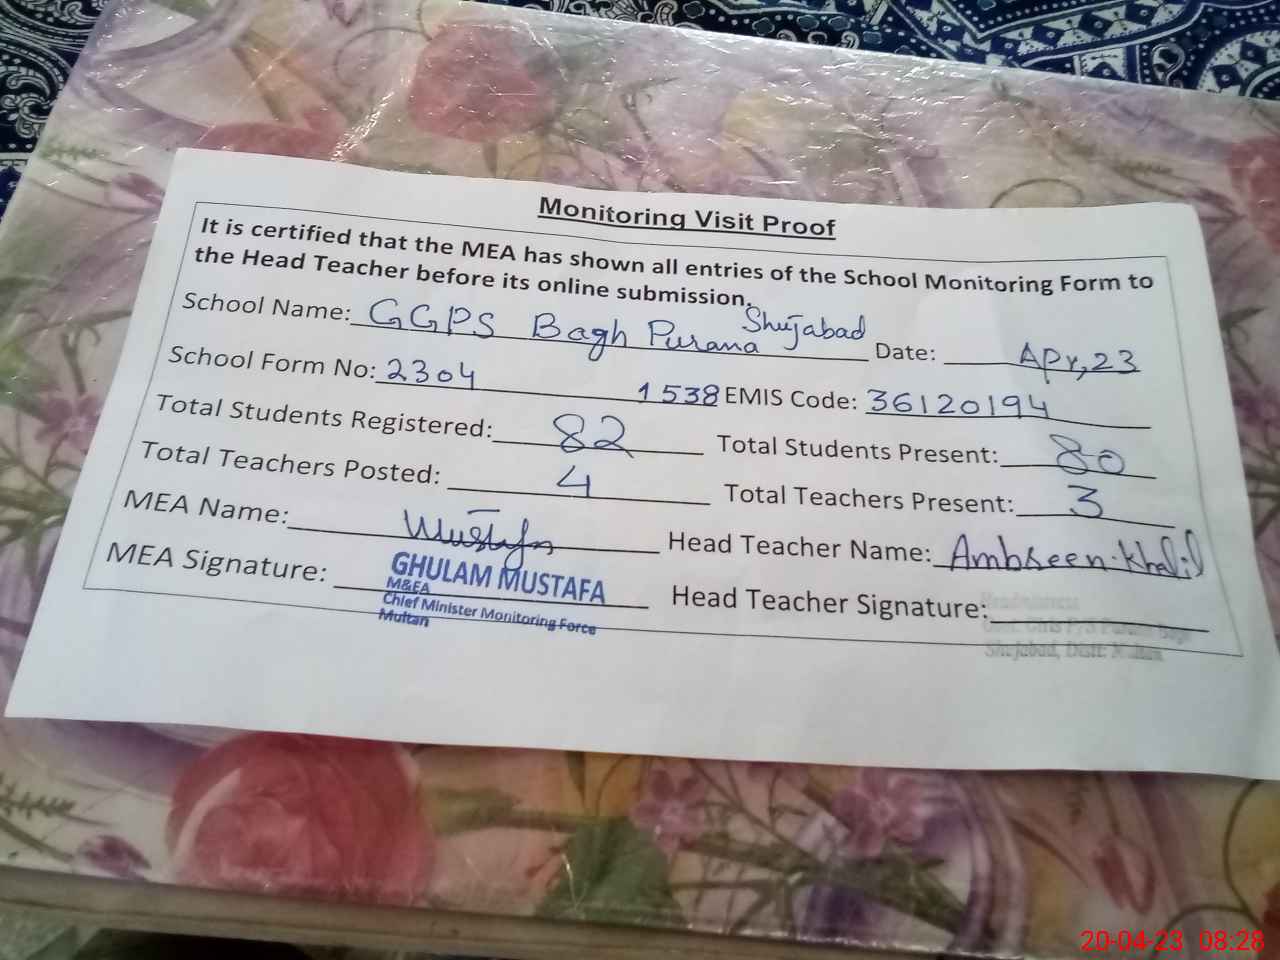 Monitoring Visit Proof
It is certified that the MEA has shown all entries of the School Monitoring Form to
the Head Teacher before its online submission.
School Name: GGPS Bagh Purana Shujabad Date: Apr,23
School Form No: 2304 1538 EMIS Code: 36120194
Total Students Registered: 82 Total Students Present: 80
Total Teachers Posted: 4 Total Teachers Present: 3
MEA Name: Mustafa Head Teacher Name: Ambreen Khalil
MEA Signature: Head Teacher Signature:
GHULAM MUSTAFA
M&EA
Chief Minister Monitoring Force
Multan
Shujabad, Distt: Multan
20-04-23 08:28